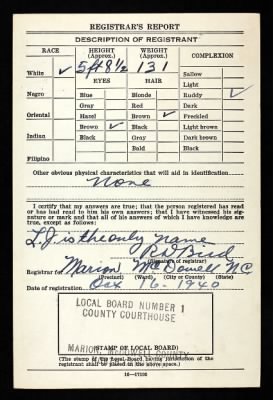 REGISTRAR'S REPORT
DESCRIPTION OF REGISTRANT
RACE HEIGHT (Approx.) WEIGHT (Approx.) COMPLEXION
White ✓ 5 ft 8 1/2 131 Sallow
EYES HAIR Light
Negro Blue Blonde Ruddy ✓
Gray Red Dark
Oriental Hazel Brown ✓ Freckled
Brown ✓ Black Light brown
Indian Black Gray Dark brown
Bald Black
Filipino
Other obvious physical characteristics that will aid in identification
None
I certify that my answers are true; that the person registered has read or has had read to him his own answers; that I have witnessed his signature or mark and that all of his answers of which I have knowledge are true, except as follows:
L. J. is the only name
Bird
(Signature of registrar)
Registrar for Marion McDowell NC
(Precinct) (Ward) (City or County) (State)
Date of registration Oct 16 - 1940
LOCAL BOARD NUMBER 1
COUNTY COURTHOUSE
MARION, MCDOWELL COUNTY
(STAMP OF LOCAL BOARD)
(The stamp of the Local Board having jurisdiction of the registrant shall be placed in the above space.)
16—17105